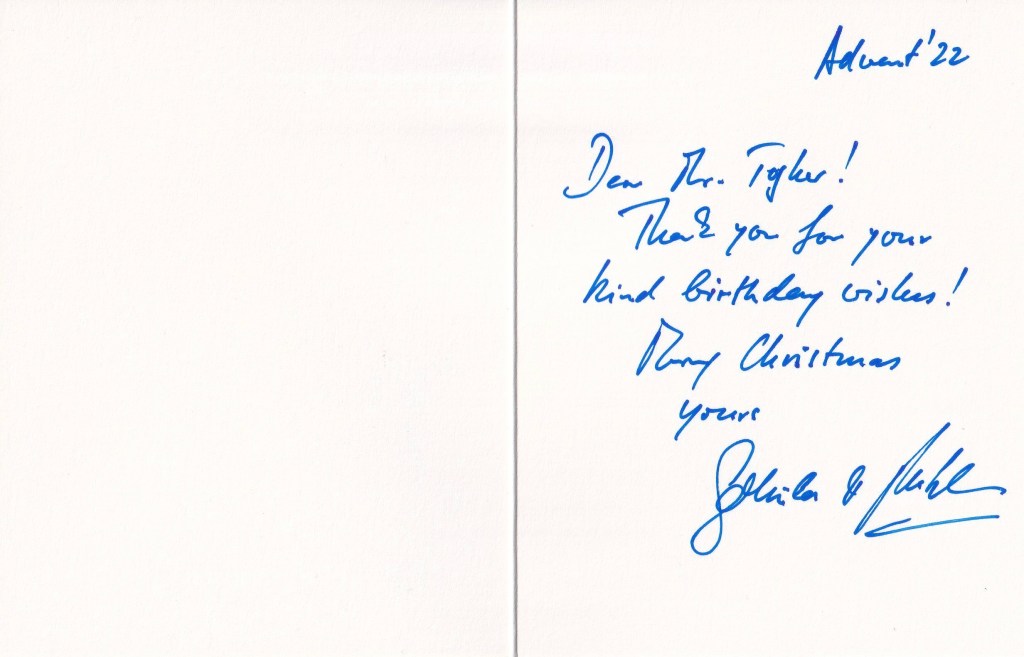 Advent '22
Dear Mr.
Thank you for your
kind birthday wishes!
Merry Christmas
yours
&